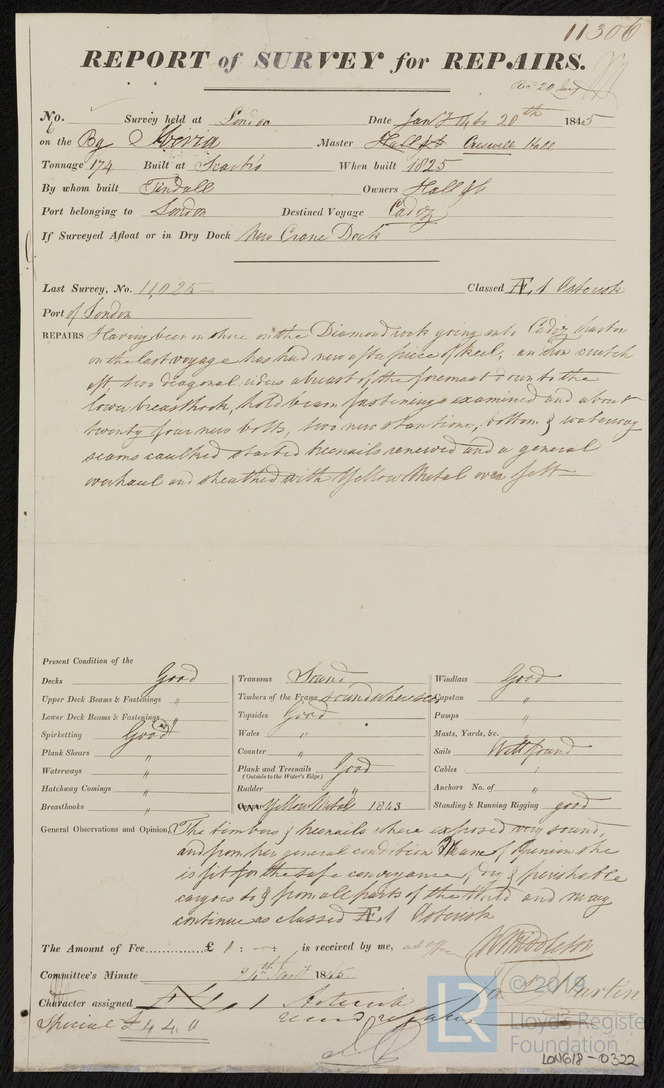 11306
REPORT of SURVEY for REPAIRS.
Recd 20 Jany
No. Survey held at London Date Jany 14 to 20th 1845
on the Bg Moria Master Hall Creswell Hall
Tonnage 174 Built at Scarbro When built 1825
By whom built Tindall Owners Hall & Co
Port belonging to London Destined Voyage Cadiz
If Surveyed Afloat or in Dry Dock New Crane Dock
Last Survey, No. 11,025 Classed Æ 1 Asterisk
Port of London
REPAIRS Having been on shore on the Diamond rock going into Cadiz harbor
on the last voyage has had new after piece of keel, an iron crutch
aft, two diagonal riders abreast of the foremast down to the
lower breasthook, hold beam fastenings examined and about
twenty four new bolts, two new stantions, bottom & waterway
seams caulked started treenails renewed and a general
overhaul and sheathed with Yellow Metal over felt
Present Condition of the
Decks Good
Upper Deck Beams & Fastenings "
Lower Deck Beams & Fastenings "
Spirketting Good
Plank Shears "
Waterways "
Hatchway Comings "
Breasthooks "
Transoms Sound
Timbers of the Frame sound where seen
Topsides Good
Wales "
Counter "
Plank and Treenails Good
(Outside to the Water's Edge)
Rudder "
Yellow Metal 1843
Windlass Good
Capstan "
Pumps "
Masts, Yards, &c. "
Sails Well found
Cables "
Anchors No. of "
Standing & Running Rigging good
General Observations and Opinion, The timbers & treenails where exposed very sound,
and from her general condition I am of Opinion she
is fit for the safe conveyance of dry & perishable
cargoes to & from all parts of the World and may
continue as classed Æ 1 Asterisk
The Amount of Fee............£ 1 : is received by me,
Committee's Minute 24th Jany 1845
Character assigned Æ 1 Asterisk
Special £ 4 4. 0
© 2019
Lloyd's Register
Foundation
LR
LON618-0322